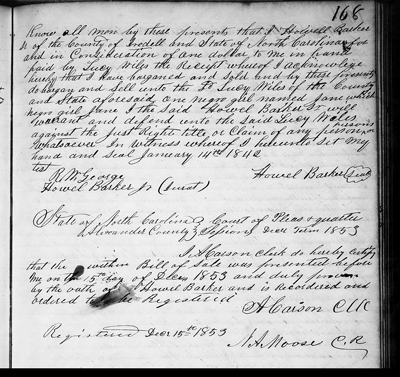 168
Know all men by these presents that I Howell Barker
of the County of Iredell and State of North Carolina for
and in Consideration of one dollar to me in hand
paid by Lucy Wiles the Receipt whereof I acknowlege
hereby that I have barganed and Sold and by these presents
do bargan and Sell unto the Sd Lucy Wiles of the County
and State aforesaid one negro girl named Jane which
negro girl Jane I the said Howel Barker Sr will
warrant and defend unto the Said Lucy Wiles
against the just Right title or Claim of any person or persons
Whatsoever In witness whereof I hereunto Set my
hand and Seal January 14th 1842
R M George Howel Barker Seal
Howel Barker Jr (Jurat)
State of North Carolina Court of Pleas & quarter
Alexander County Sessions Decr Term 1853
I A Carson Clerk do hereby certify
that the within Bill of Sale was presented before
me on the 5th day of Decem 1853 and duly
by the oath of Howel Barker and is Recorded and
ordered to be Registered
A Carson C
Registered Decr 15th 1853
A Moose C.R.